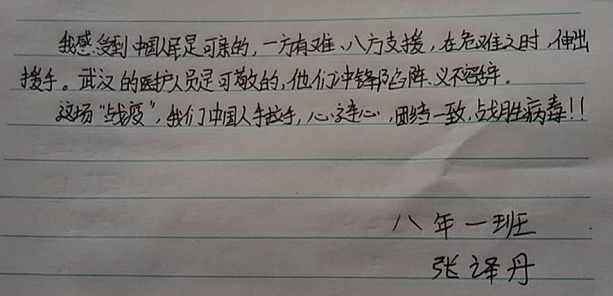 我感受到中国人民是可亲的，一方有难、八方支援，在危难之时，伸出
援手。武汉的医护人员是可敬的，他们冲锋陷阵、义不容辞。
这场“战疫”，我们中国人手拉手，心连心，团结一致，战胜病毒!!
八年一班
张译丹